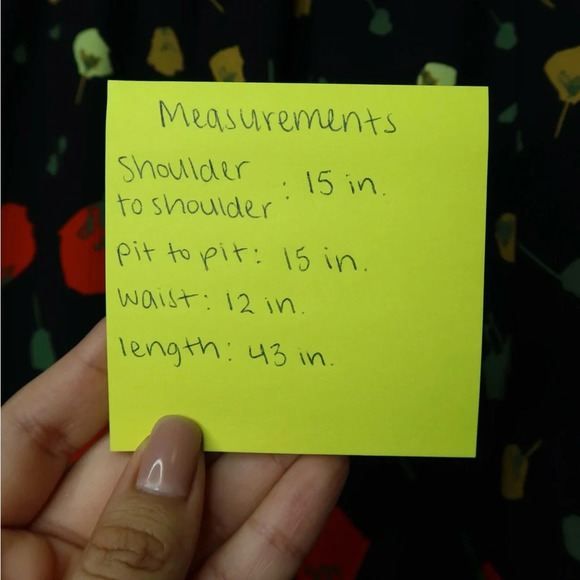 Measurements
Shoulder
to shoulder : 15 in.
pit to pit: 15 in.
waist: 12 in.
length: 43 in.